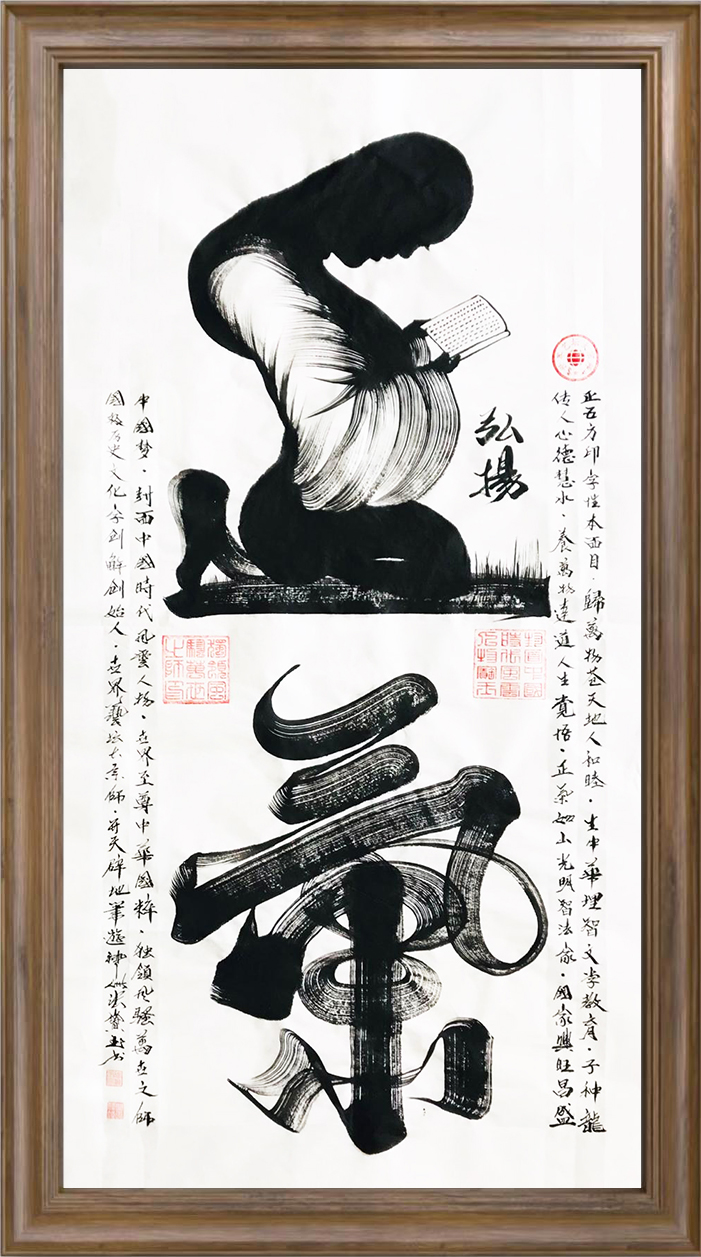 正五方印字性本面目·歸萬物蒼天地人和睦·生中華理智文学教育·子神龍
传人心德慧水·養萬物達道人生覚悟·正氣如山光明智法家·國家興旺昌盛
弘揚
正氣
中國梦·封面中國時代風雲人物·世界至尊中華國粹·独領風騷萬世文師
國级历史文化字刻解創始人·世界藝坛大宗師·开天辟地筆遊神